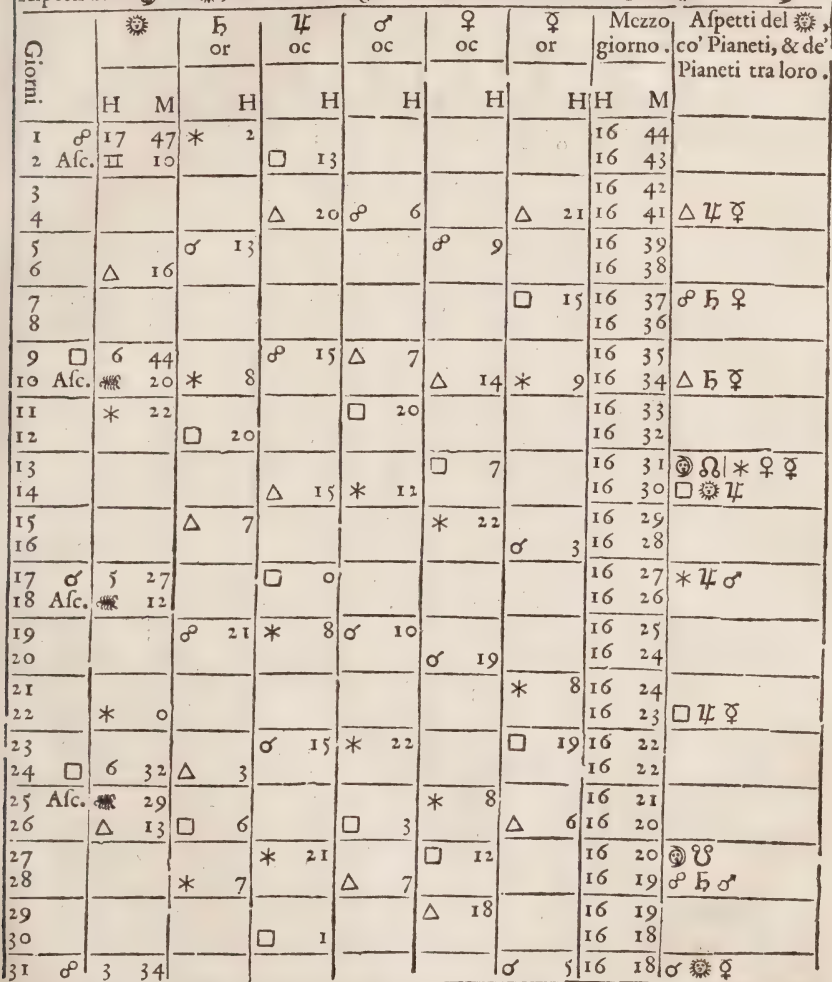 ☼ ♄ ♃ ♂ ♀ ☿ Mezzo Aſpetti del ☼,
or oc oc oc or giorno. co' Pianeti, & de'
Pianeti tra loro.
Giorni H M H H H H H H M
1 ☍ 17 47 ✶ 2 16 44
2 Aſc. ♊ 10 □ 13 16 43
3 16 42
4 △ 20 ☍ 6 △ 21 16 41 △ ♃ ☿
5 ☌ 13 ☍ 9 16 39
6 △ 16 16 38
7 □ 15 16 37 ☍ ♄ ♀
8 16 36
9 □ 6 44 ☍ 15 △ 7 16 35
10 Aſc. ♏ 20 ✶ 8 △ 14 ✶ 9 16 34 △ ♄ ☿
11 ✶ 22 □ 20 16 33
12 □ 20 16 32
13 □ 7 16 31 ☽ ☊ | ✶ ♀ ☿
14 △ 15 ✶ 12 16 30 □ ☼ ♃
15 △ 7 ✶ 22 16 29
16 ☌ 3 16 28
17 ☌ 5 27 □ 0 16 27 ✶ ♃ ♂
18 Aſc. ♏ 12 16 26
19 ☍ 21 ✶ 8 ☌ 10 16 25
20 ☌ 19 16 24
21 ✶ 8 16 24
22 ✶ 0 16 23 □ ♃ ☿
23 ☌ 15 ✶ 22 □ 19 16 22
24 □ 6 32 △ 3 16 22
25 Aſc. ♏ 29 ✶ 8 16 21
26 △ 13 □ 6 □ 3 △ 6 16 20
27 ✶ 21 □ 12 16 20 ☽ ☋
28 ✶ 7 △ 7 16 19 ☍ ♄ ♂
29 △ 18 16 19
30 □ 1 16 18
31 ☍ 3 34 ☌ 5 16 18 ☌ ☼ ☿